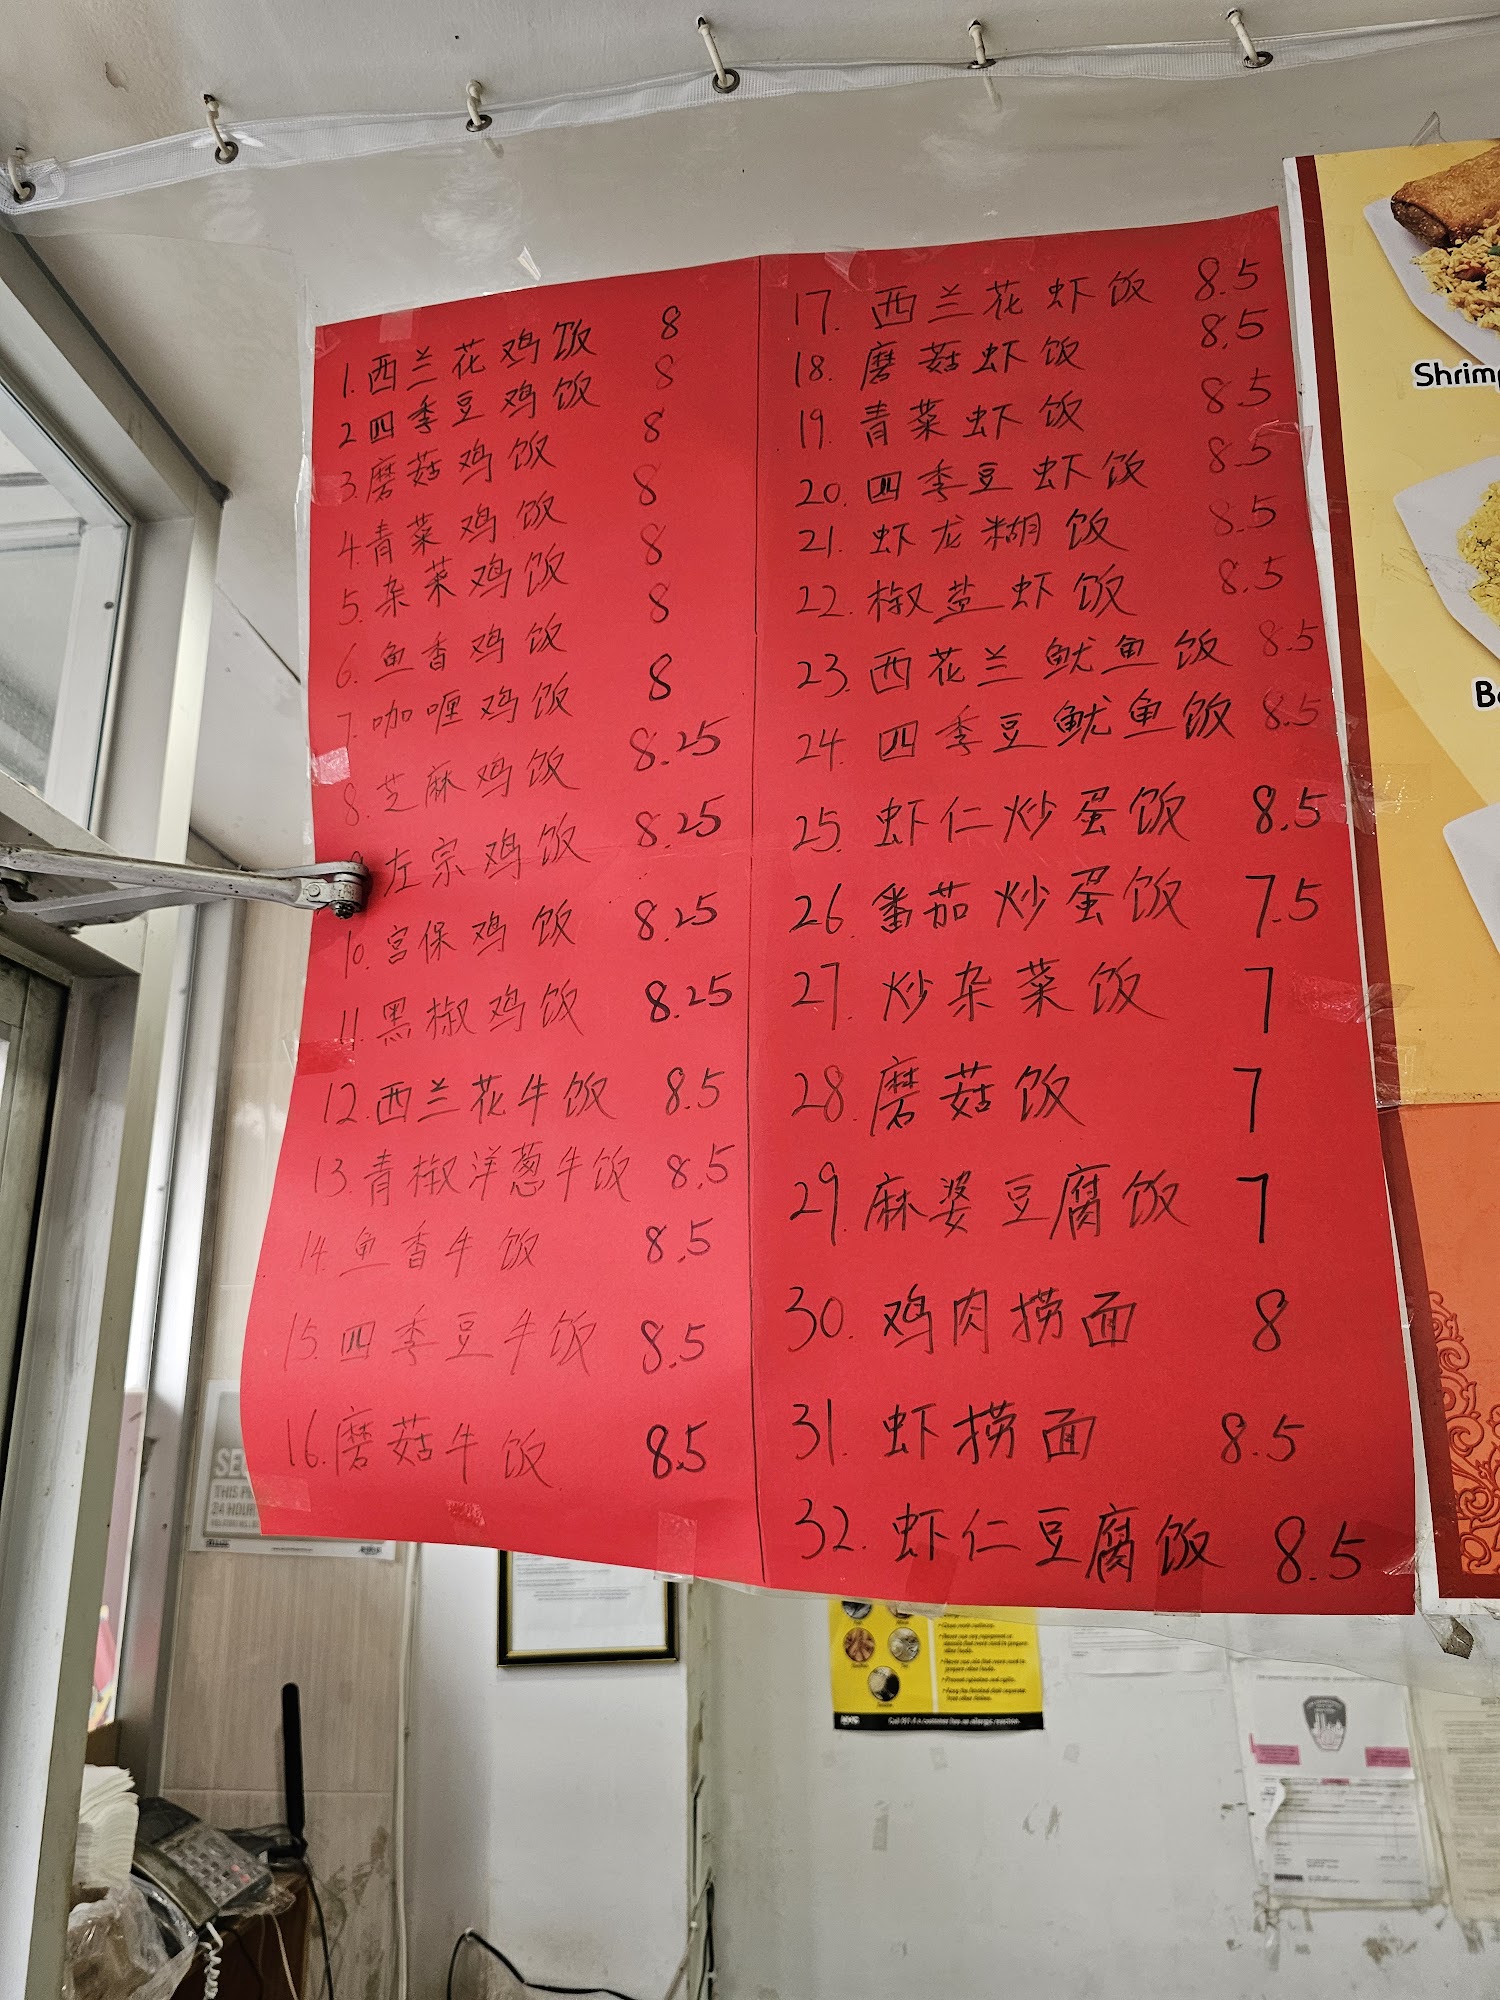 1. 西兰花鸡饭 8
2 四季豆鸡饭 8
3. 磨菇鸡饭 8
4. 青菜鸡饭 8
5. 杂菜鸡饭 8
6. 鱼香鸡饭 8
7. 咖喱鸡饭 8
8. 芝麻鸡饭 8.25
9 左宗鸡饭 8.25
10. 宫保鸡饭 8.25
11. 黑椒鸡饭 8.25
12. 西兰花牛饭 8.5
13. 青椒洋葱牛饭 8.5
14. 鱼香牛饭 8.5
15. 四季豆牛饭 8.5
16. 磨菇牛饭 8.5
17. 西兰花虾饭 8.5
18. 磨菇虾饭 8.5
19. 青菜虾饭 8.5
20. 四季豆虾饭 8.5
21. 虾龙糊饭 8.5
22. 椒盐虾饭 8.5
23. 西花兰鱿鱼饭 8.5
24. 四季豆鱿鱼饭 8.5
25. 虾仁炒蛋饭 8.5
26 番茄炒蛋饭 7.5
27. 炒杂菜饭 7
28. 磨菇饭 7
29. 麻婆豆腐饭 7
30. 鸡肉捞面 8
31. 虾捞面 8.5
32. 虾仁豆腐饭 8.5
Shrim
B
SE
THIS P
24 HOUR